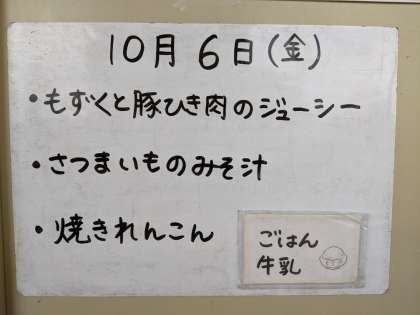 10月6日(金)
・もずくと豚ひき肉のジューシー
・さつまいものみそ汁
・焼きれんこん
ごはん
牛乳